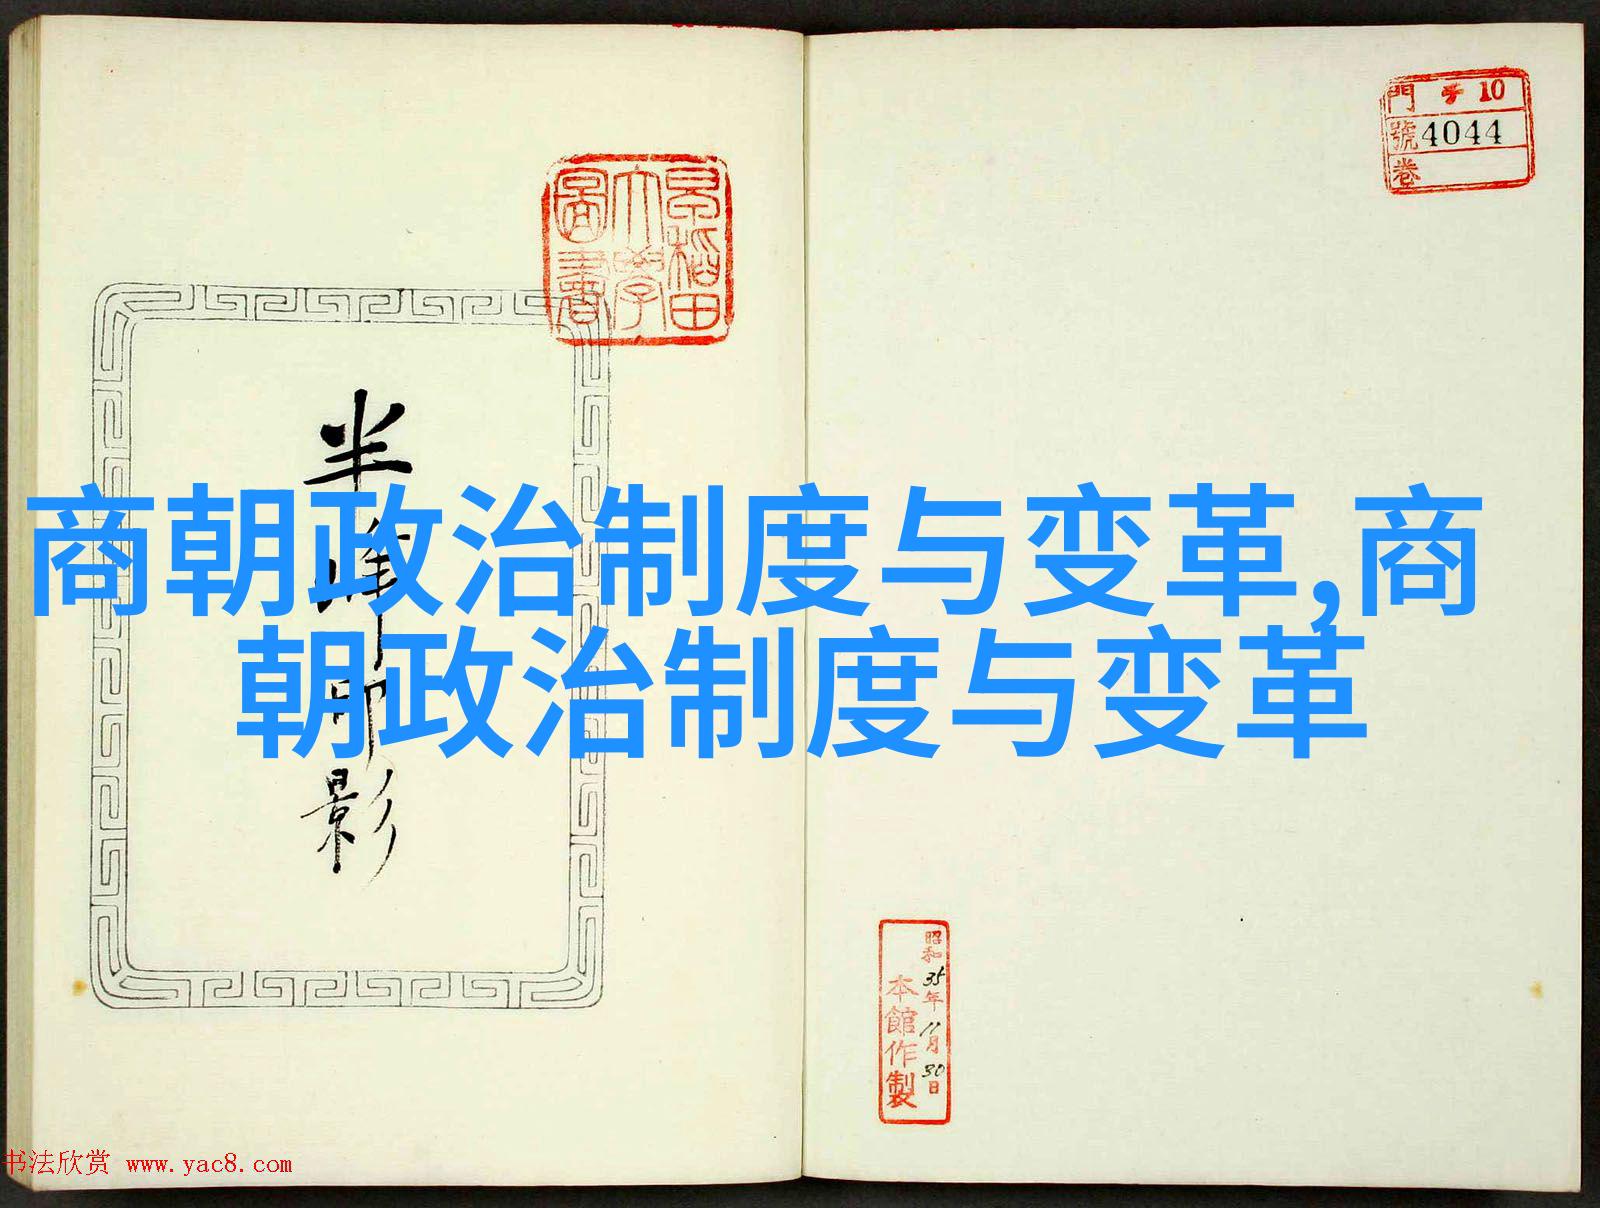 門 10
號 4044
卷
早稲田
大學
圖書
半峰印影
商朝政治制度与变革,商
朝政治制度与变革
昭和35年11月30日
本館作製
书法欣赏 www.yac8.com